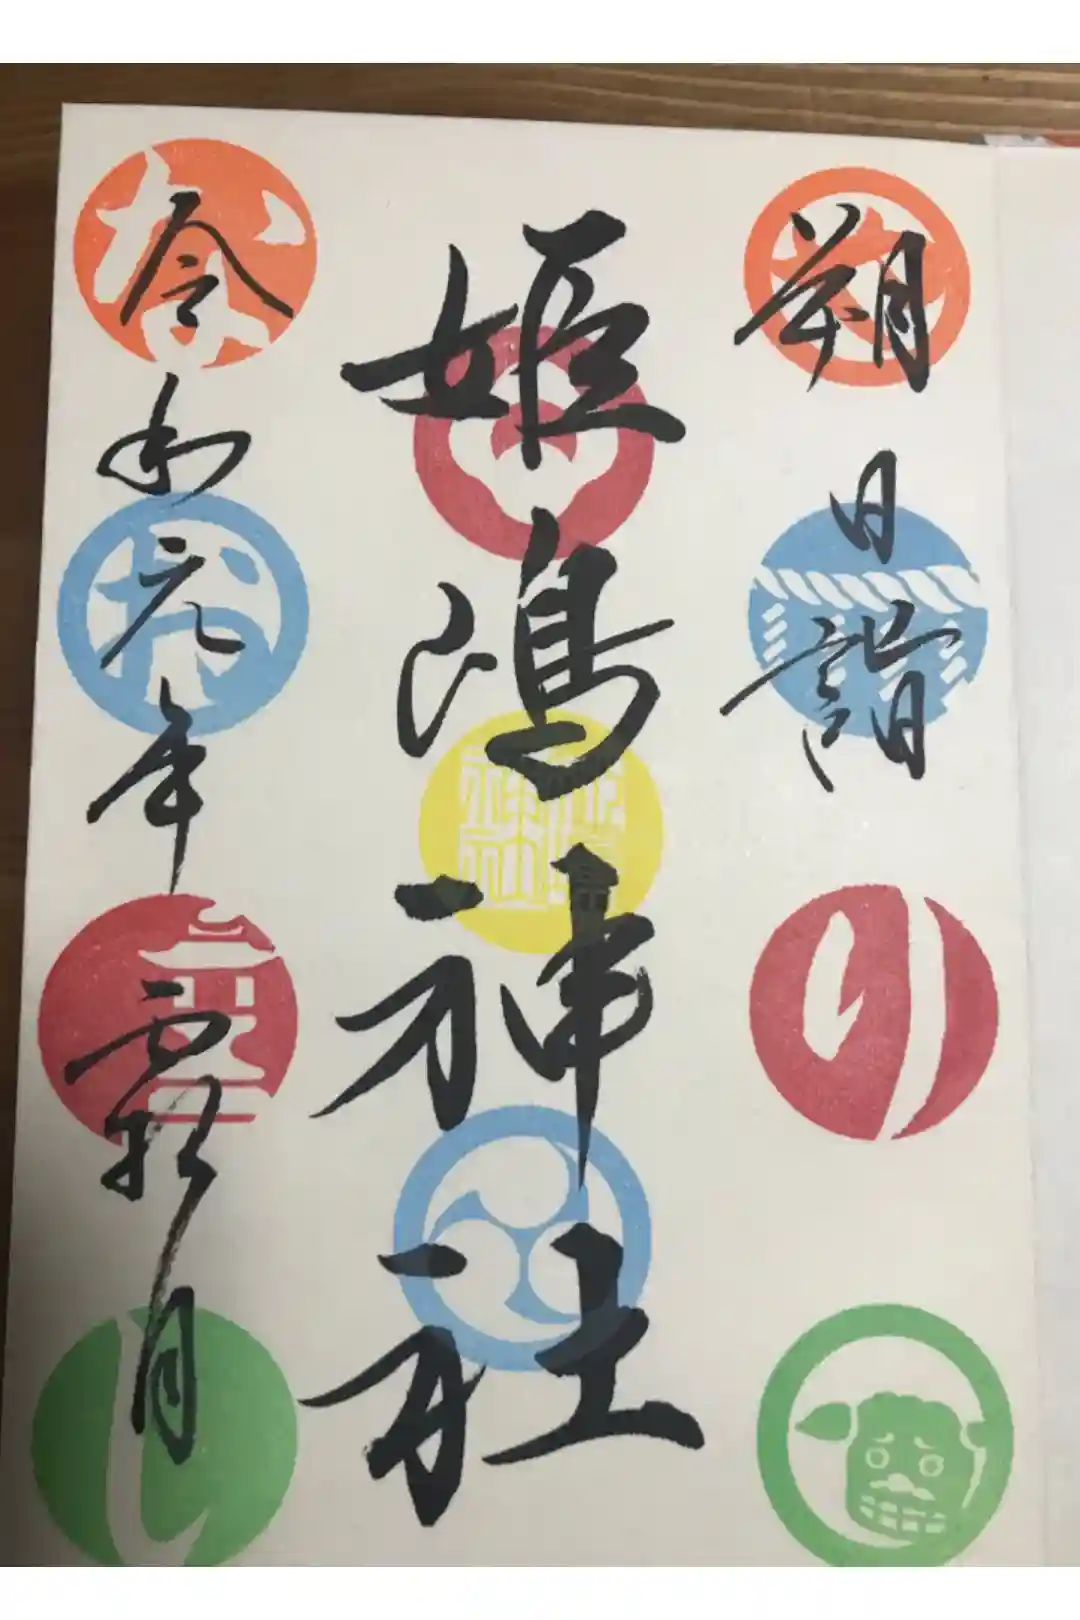 朔日詣
り
姫嶋神社
令和元年霜月
し